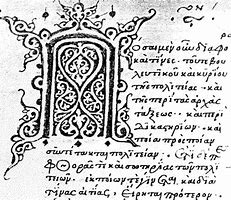 Ὅσαι μὲν οὖν διαφο
καὶ τίνες· τοῦ τε βου
λευτικοῦ καὶ κυρίου
τῆς πολιτείας· καὶ
τῆς περὶ τὰς ἀρχὰς
τάξεως· καὶ περὶ
δικαστηρίων· καὶ
ποία πρὸς ποίαν
συντέτακται πολιτείαν· ἔτι δὲ περὶ
φθορᾶς τε καὶ σωτηρίας τῶν πολι
τειῶν· ἐκ ποίων τε γίνεται καὶ διὰ
τίνας αἰτίας· εἴρηται πρότερον·